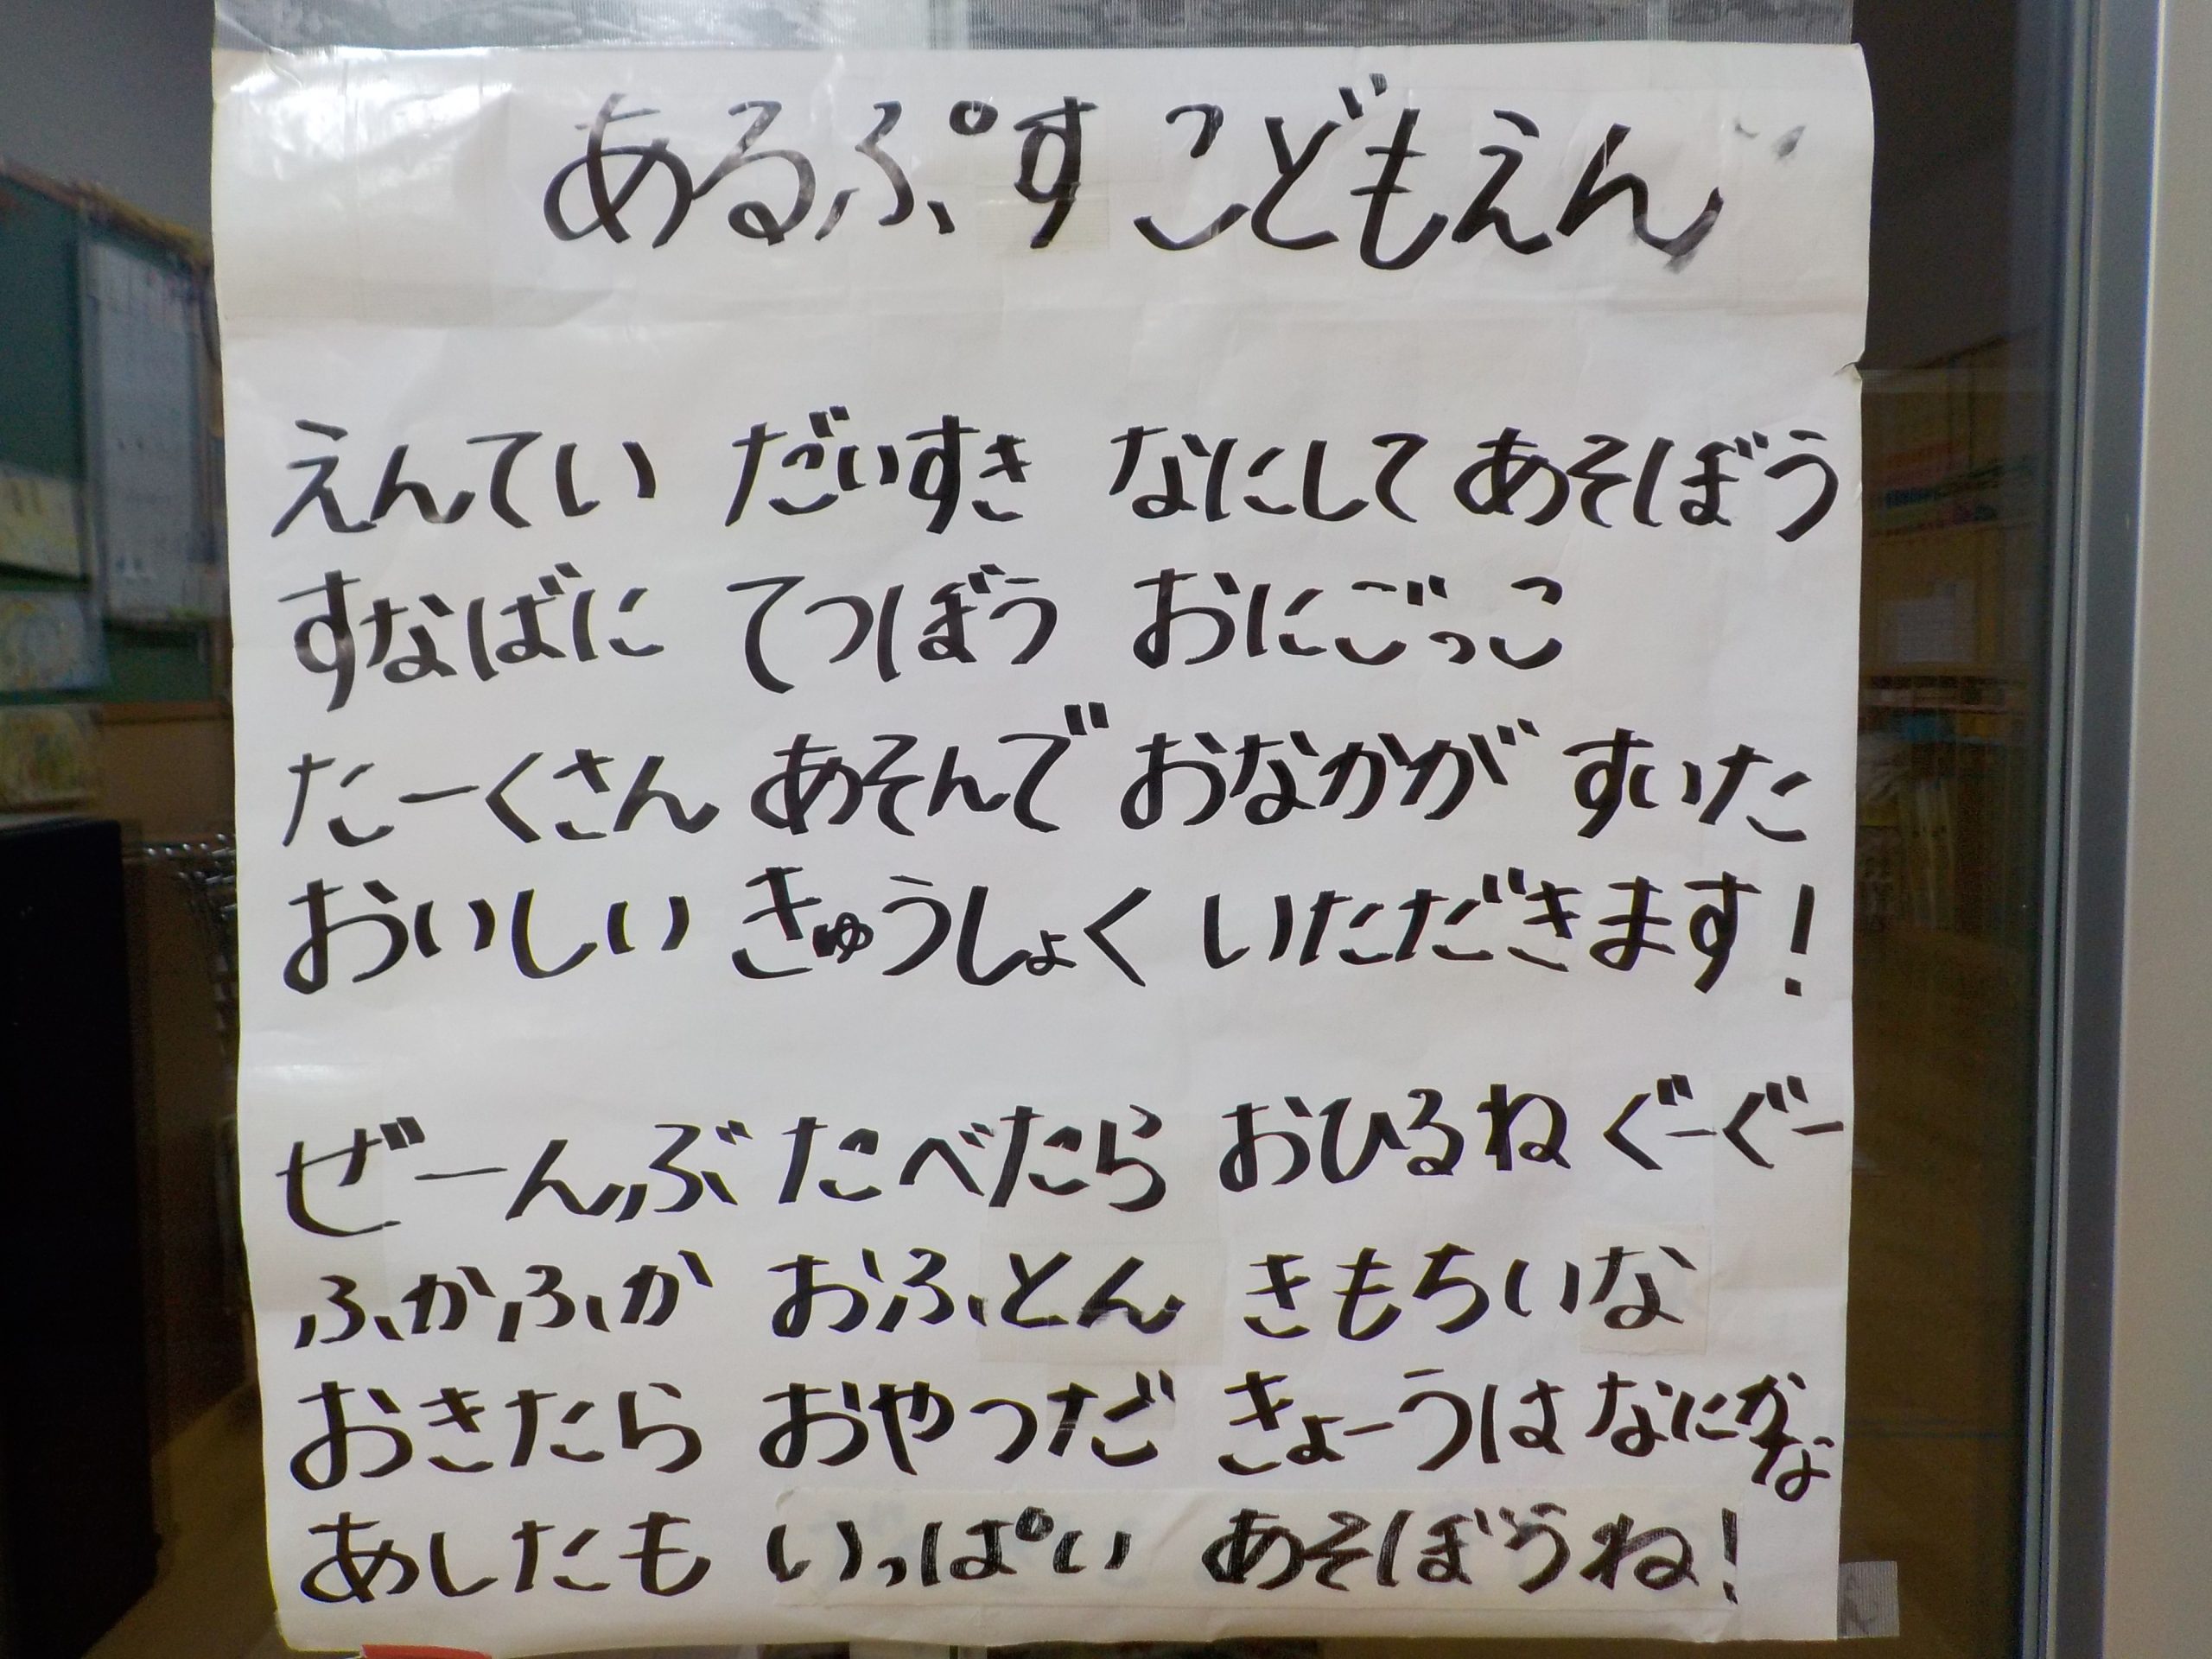 あるぷす こどもえん
えんてい だいすき なにして あそぼう
すなばに てつぼう おにごっこ
たーくさん あそんで おなかが すいた
おいしい きゅうしょく いただきます!
ぜーんぶ たべたら おひるね ぐーぐー
ふかふか おふとん きもちいな
おきたら おやつだ きょーうは なにかな
あしたも いっぱい あそぼうね!